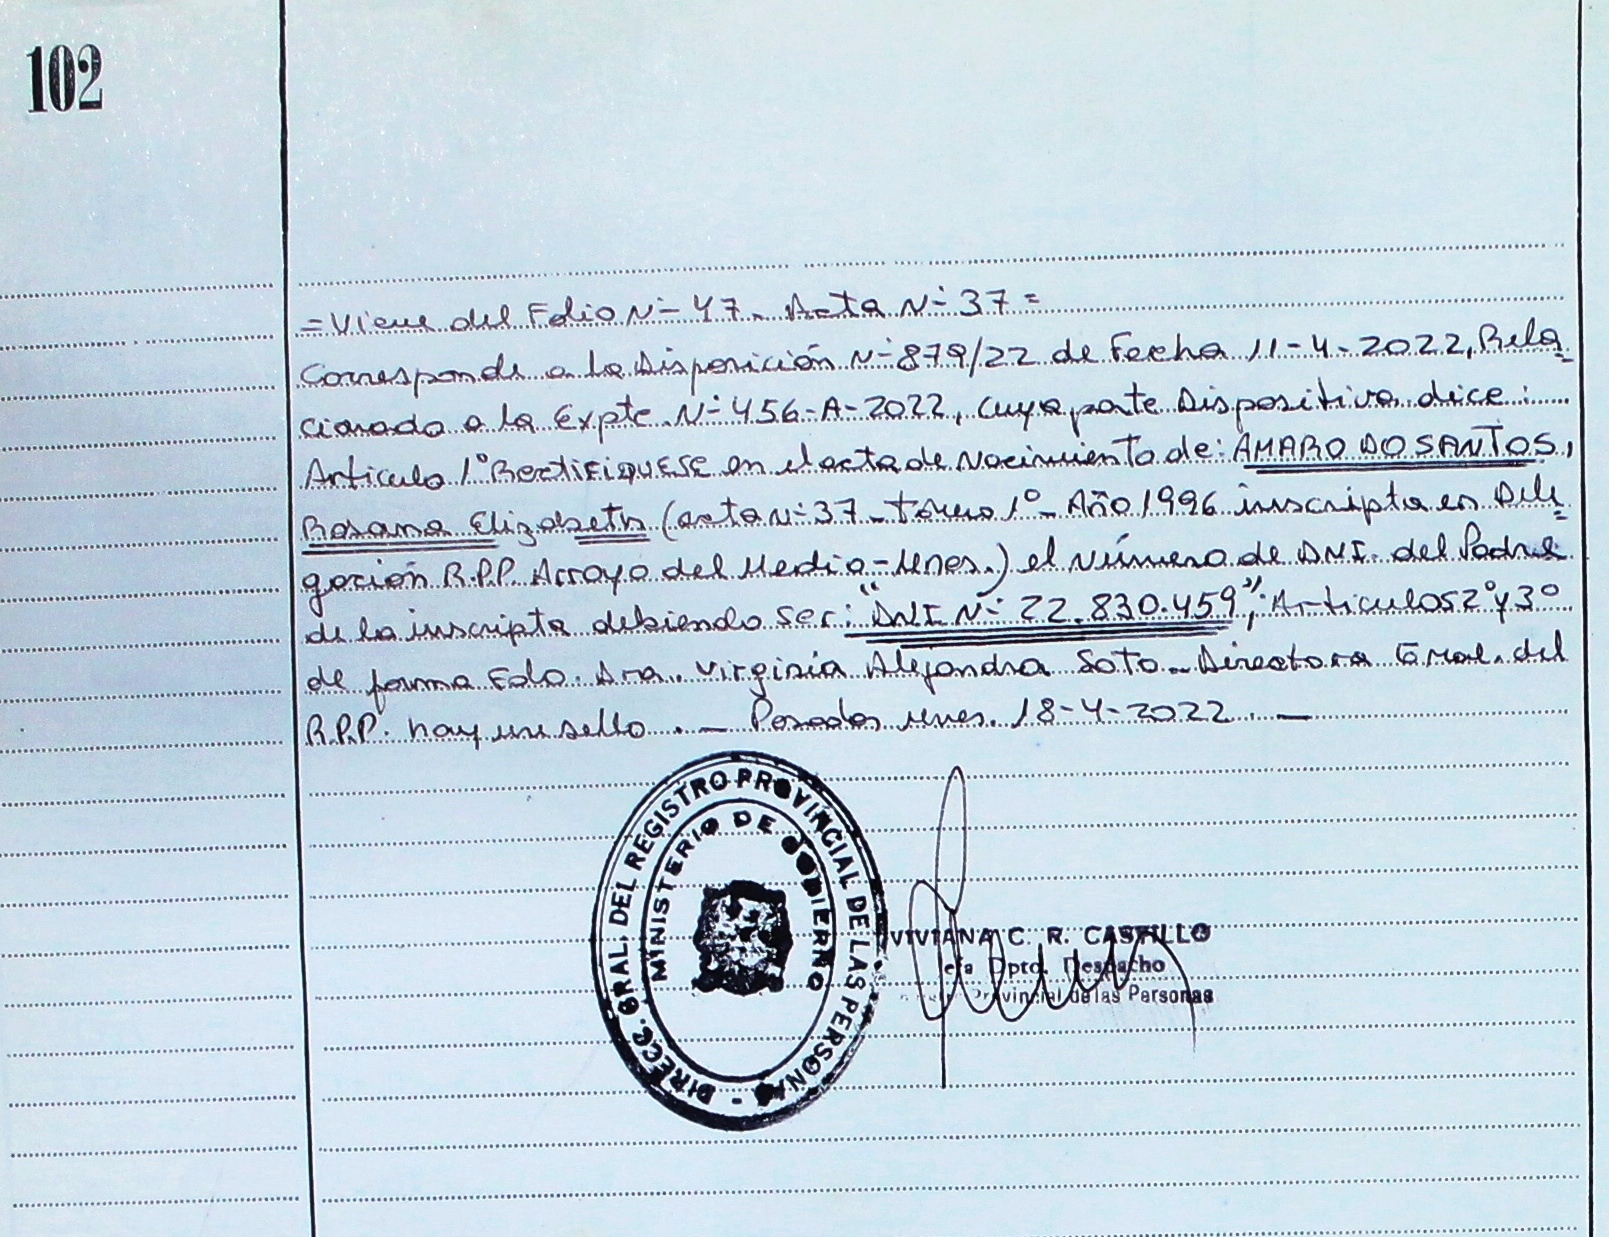 102
=Viene del Folio N- 47- Acta N- 37=
Corresponde a la Disposición N- 879/22 de Fecha 11-4-2022, Rela=
cionado a la Expte. N- 456-A-2022, cuya parte Dispositiva dice:
Artículo 1º Rectifiquese en el acta de Nacimiento de: AMARO DO SANTOS,
Rosana Elizabeth (acta N- 37- tomo 1º- Año 1996 inscripta en Dele=
gación R.P.P. Arroyo del Medio-Mnes.) el Número de D.N.I. del Padre
de la inscripta debiendo ser: "DNI N- 22.830.459"; Artículos 2º y 3º
de forma Fdo. Dra. Virginia Alejandra Soto- Directora Gral. del
R.P.P. hay un sello. - Posadas Mnes. 18-4-2022. -
DIRECC. GRAL. DEL REGISTRO PROVINCIAL DE LAS PERSONAS -
MINISTERIO DE GOBIERNO
VIVIANA C. R. CASTILLO
Jefa Dpto. Despacho
Provincial de las Personas